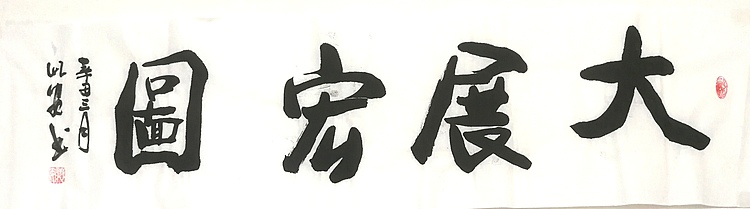 大展宏圖
辛丑三月